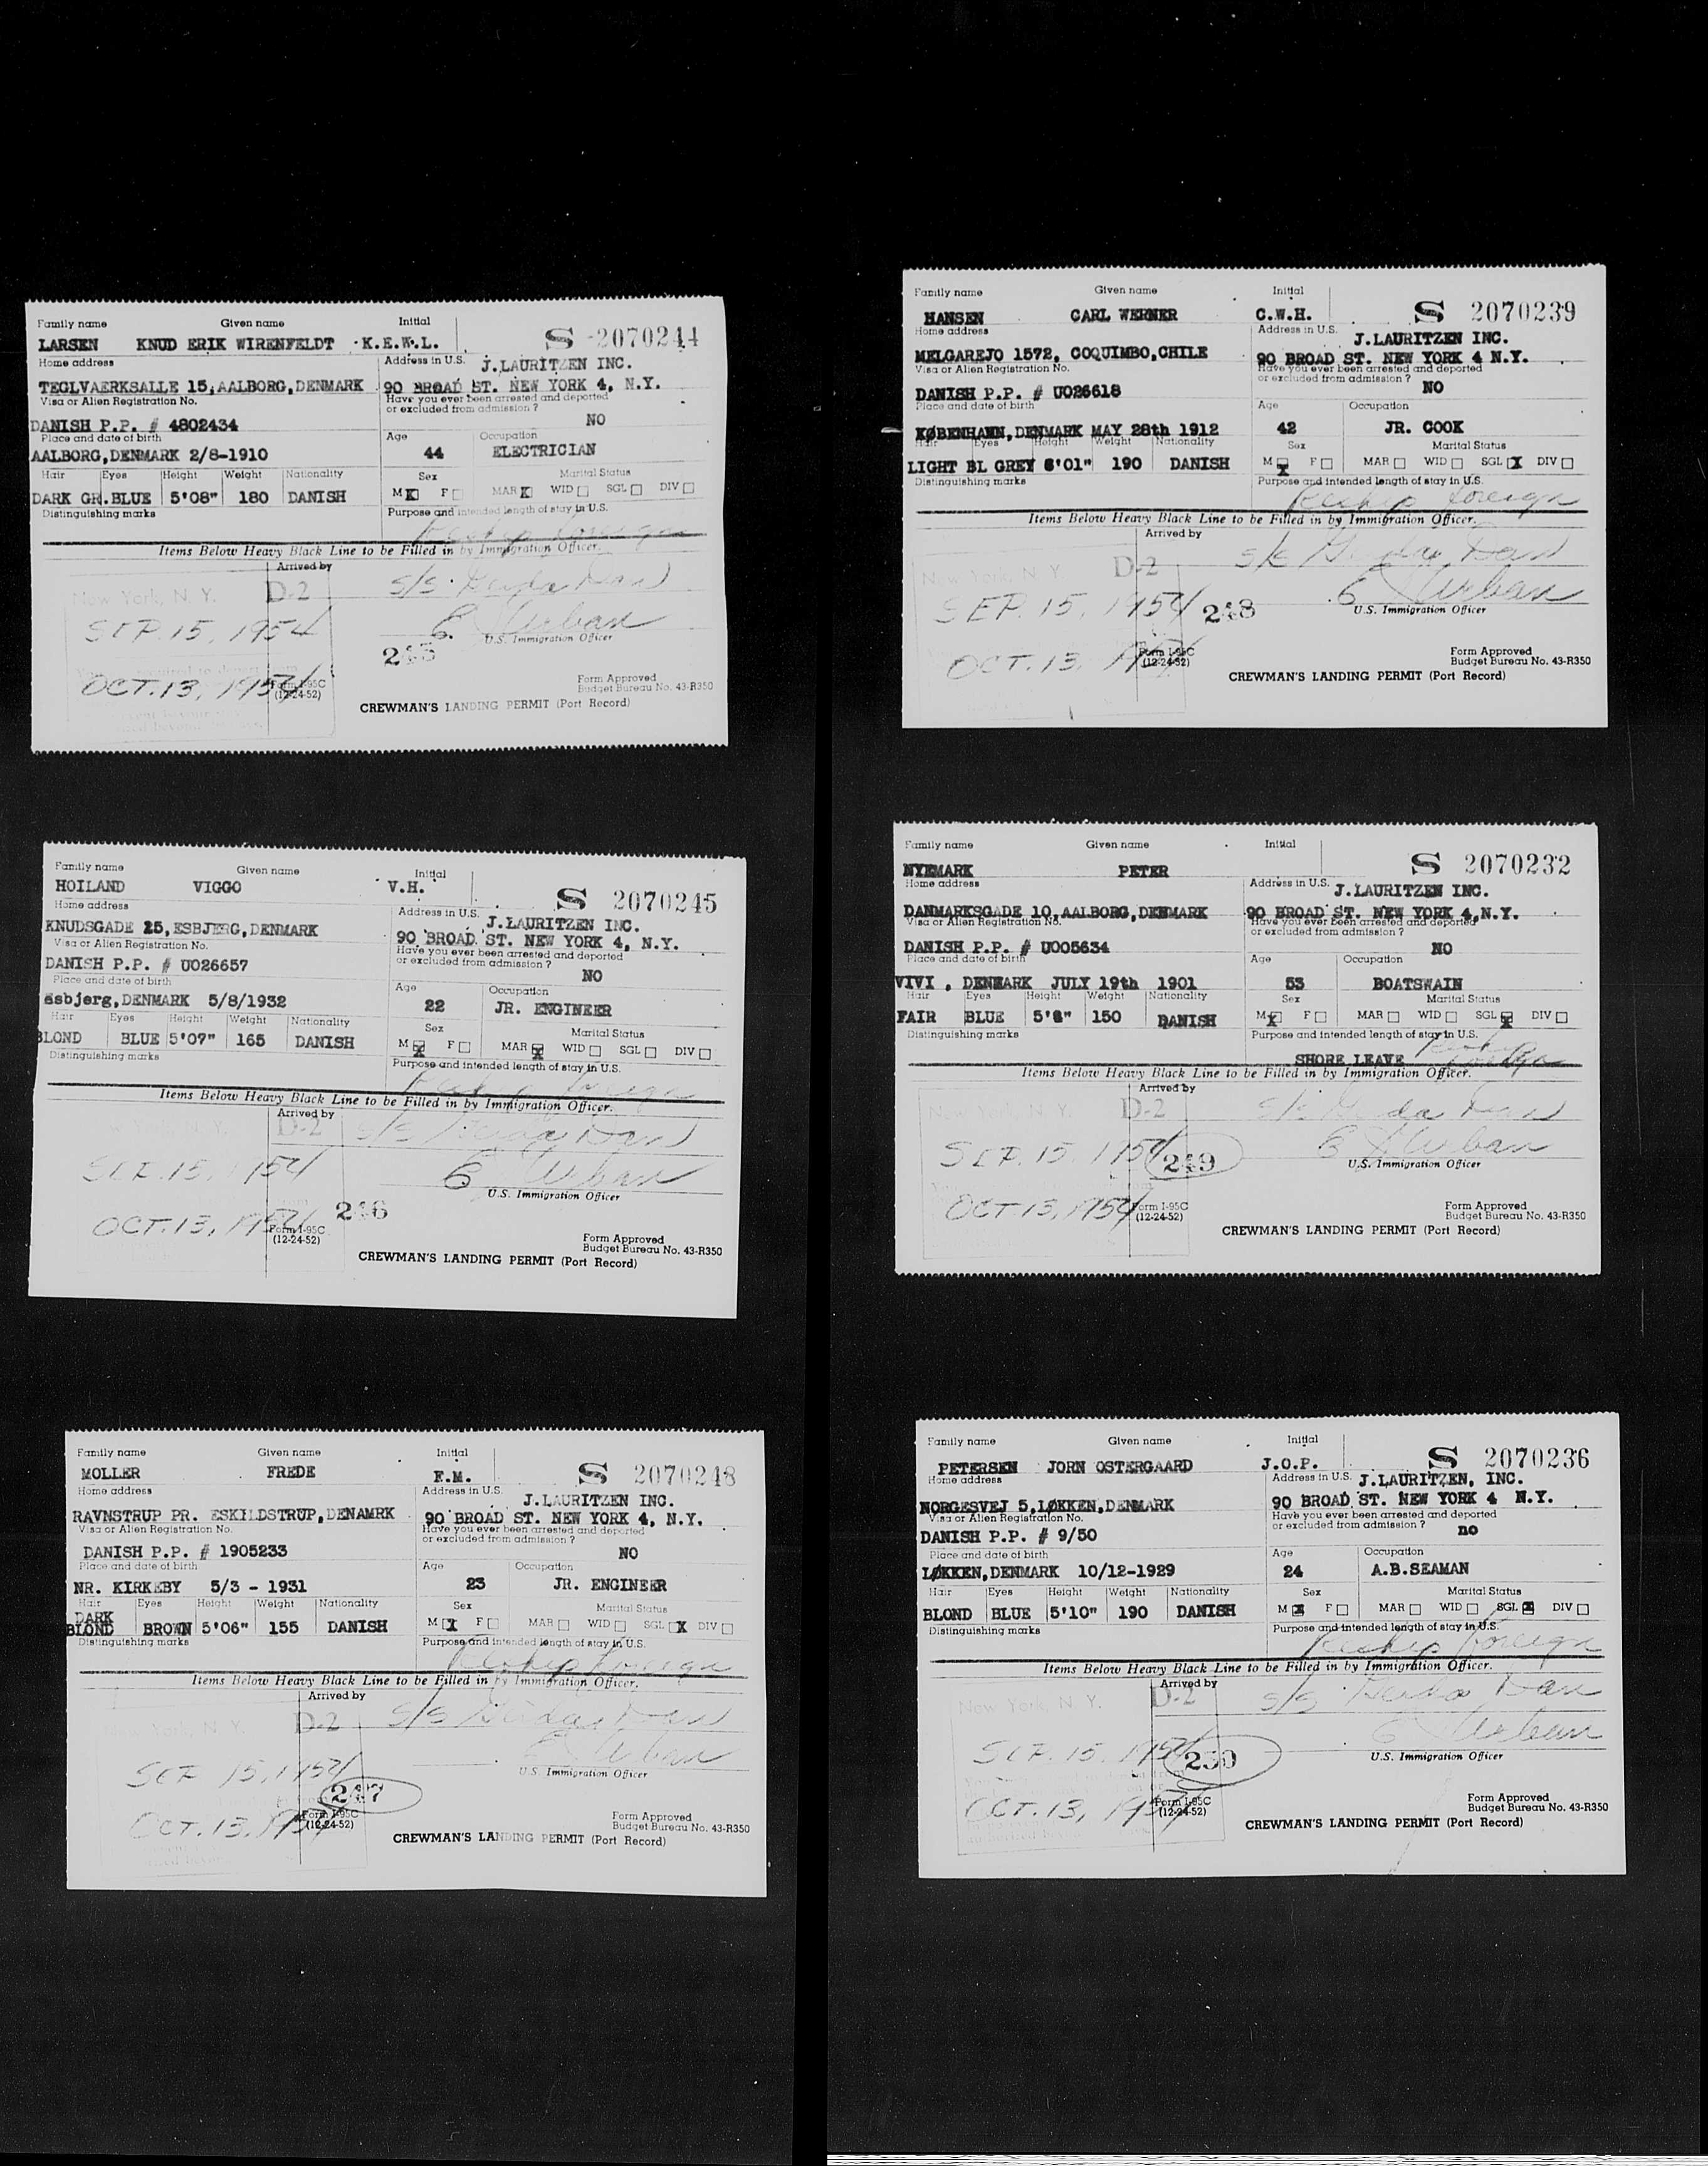 Family name Given name Initial
S 2070244
LARSEN KNUD ERIK WIRENFELDT K.E.W.L.
Home address Address in U.S. J.LAURITZEN INC.
TEGLVAERKSALLE 15,AALBORG,DENMARK 90 BROAD ST. NEW YORK 4, N.Y.
Visa or Alien Registration No. Have you ever been arrested and deported
or excluded from admission?
NO
DANISH P.P. # 4802434
Place and date of birth Age Occupation
AALBORG,DENMARK 2/8-1910 44 ELECTRICIAN
Hair Eyes Height Weight Nationality Sex Marital Status
DARK GR.BLUE 5'08" 180 DANISH M X F MAR X WID SGL DIV
Distinguishing marks Purpose and intended length of stay in U.S.
Reship foreign
Items Below Heavy Black Line to be Filled in by Immigration Officer.
Arrived by
New York, N. Y. D-2 S/S Gerda Dan
SEP. 15, 1954 E Urban
U.S. Immigration Officer
245
OCT. 13, 1954 Form I-95C
(12-24-52)
Form Approved
Budget Bureau No. 43-R350
CREWMAN'S LANDING PERMIT (Port Record)
Family name Given name Initial
S 2070245
HOILAND VIGGO V.H.
Home address Address in U.S. J.LAURITZEN INC.
KNUDSGADE 25,ESBJERG,DENMARK 90 BROAD ST. NEW YORK 4, N.Y.
Visa or Alien Registration No. Have you ever been arrested and deported
or excluded from admission?
DANISH P.P. # U026657 NO
Place and date of birth Age Occupation
Esbjerg,DENMARK 5/8/1932 22 JR. ENGINEER
Hair Eyes Height Weight Nationality Sex Marital Status
BLOND BLUE 5'07" 165 DANISH M X F MAR X WID SGL DIV
Distinguishing marks Purpose and intended length of stay in U.S.
Reship foreign
Items Below Heavy Black Line to be Filled in by Immigration Officer.
Arrived by
D-2 S/S Gerda Dan
SEP. 15, 1954 E Urban
U.S. Immigration Officer
246
OCT. 13, 1954 Form I-95C
(12-24-52)
Form Approved
Budget Bureau No. 43-R350
CREWMAN'S LANDING PERMIT (Port Record)
Family name Given name Initial
S 2070248
MOLLER FREDE F.M.
Home address Address in U.S.
J.LAURITZEN INC.
RAVNSTRUP PR. ESKILDSTRUP,DENAMRK 90 BROAD ST. NEW YORK 4, N.Y.
Visa or Alien Registration No. Have you ever been arrested and deported
or excluded from admission?
DANISH P.P. # 1905233 NO
Place and date of birth Age Occupation
NR. KIRKEBY 5/3 - 1931 23 JR. ENGINEER
Hair Eyes Height Weight Nationality Sex Marital Status
DARK
BLOND BROWN 5'06" 155 DANISH M X F MAR WID SGL X DIV
Distinguishing marks Purpose and intended length of stay in U.S.
Reship foreign
Items Below Heavy Black Line to be Filled in by Immigration Officer.
Arrived by
York, N. Y. D-2 S/S Gerda Dan
SEP. 15, 1954 E Urban
U.S. Immigration Officer
247
OCT. 13, 1954 Form I-95C
(12-24-52)
Form Approved
Budget Bureau No. 43-R350
CREWMAN'S LANDING PERMIT (Port Record)
Family name Given name Initial
S 2070239
HANSEN CARL WERNER C.W.H.
Home address Address in U.S.
J.LAURITZEN INC.
MELGAREJO 1572, COQUIMBO,CHILE 90 BROAD ST. NEW YORK 4 N.Y.
Visa or Alien Registration No. Have you ever been arrested and deported
or excluded from admission?
DANISH P.P. # U026618 NO
Place and date of birth Age Occupation
KØBENHAVN,DENMARK MAY 28th 1912 42 JR. COOK
Hair Eyes Height Weight Nationality Sex Marital Status
LIGHT BL GREY 6'01" 190 DANISH M X F MAR WID SGL X DIV
Distinguishing marks Purpose and intended length of stay in U.S.
Reship foreign
Items Below Heavy Black Line to be Filled in by Immigration Officer.
Arrived by
New York, N. Y. D-2 S/S Gerda Dan
SEP. 15, 1954 248 E Urban
U.S. Immigration Officer
OCT. 13, 1954 Form I-95C
(12-24-52)
Form Approved
Budget Bureau No. 43-R350
CREWMAN'S LANDING PERMIT (Port Record)
Family name Given name Initial
S 2070232
NYEMARK PETER
Home address Address in U.S. J.LAURITZEN INC.
DANMARKSGADE 10,AALBORG,DENMARK 90 BROAD ST. NEW YORK 4,N.Y.
Visa or Alien Registration No. Have you ever been arrested and deported
or excluded from admission?
DANISH P.P. # U005634 NO
Place and date of birth Age Occupation
VIVI , DENMARK JULY 19th 1901 53 BOATSWAIN
Hair Eyes Height Weight Nationality Sex Marital Status
FAIR BLUE 5'8" 150 DANISH M X F MAR WID SGL X DIV
Distinguishing marks Purpose and intended length of stay in U.S.
SHORE LEAVE Reship foreign
Items Below Heavy Black Line to be Filled in by Immigration Officer.
Arrived by
D-2 S/S Gerda Dan
SEP. 15, 1954 249 E Urban
U.S. Immigration Officer
OCT. 13, 1954 Form I-95C
(12-24-52)
Form Approved
Budget Bureau No. 43-R350
CREWMAN'S LANDING PERMIT (Port Record)
Family name Given name Initial
S 2070236
PETERSEN JORN OSTERGAARD J.O.P.
Home address Address in U.S. J.LAURITZEN, INC.
NORGESVEJ 5,LØKKEN,DENMARK 90 BROAD ST. NEW YORK 4 N.Y.
Visa or Alien Registration No. Have you ever been arrested and deported
or excluded from admission?
DANISH P.P. # 9/50 no
Place and date of birth Age Occupation
LØKKEN,DENMARK 10/12-1929 24 A.B.SEAMAN
Hair Eyes Height Weight Nationality Sex Marital Status
BLOND BLUE 5'10" 190 DANISH M X F MAR WID SGL X DIV
Distinguishing marks Purpose and intended length of stay in U.S.
Reship foreign
Items Below Heavy Black Line to be Filled in by Immigration Officer.
Arrived by
New York, N. Y. D-2 S/S Gerda Dan
SEP. 15, 1954 250 E Urban
U.S. Immigration Officer
OCT. 13, 1954 Form I-95C
(12-24-52)
Form Approved
Budget Bureau No. 43-R350
CREWMAN'S LANDING PERMIT (Port Record)